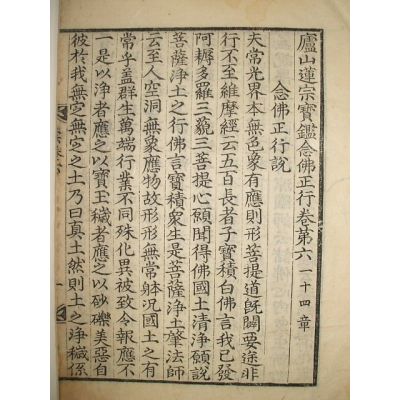 廬山蓮宗寶鑑念佛正行卷第六 一十四章
念佛正行說
夫常光界本無色象有應則形菩提道旣闢要途非
行不至維摩經云五百長者子寶積白佛言我已發
阿耨多羅三藐三菩提心願聞得佛國土清淨願說
菩薩淨土之行佛言寶積衆生是菩薩淨土肇法師
云至人空洞無象應物故形形無常體況國土之有
常乎盖群生萬端行業不同殊化異被致令報應不
一是以淨者應之以寶玉穢者應之以砂礫美惡自
彼於我無㝎無㝎之土乃曰真土然則土之淨穢係